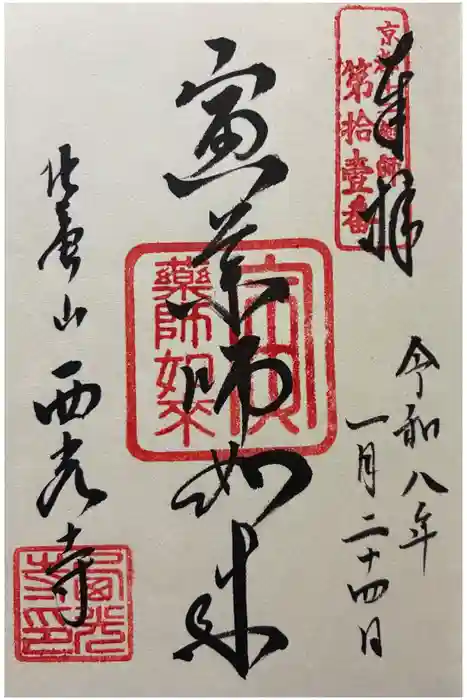 奉拝
京都十二薬師
第拾壹番
令和八年
一月二十四日
寅薬師如来
寅
薬師如来
西光寺